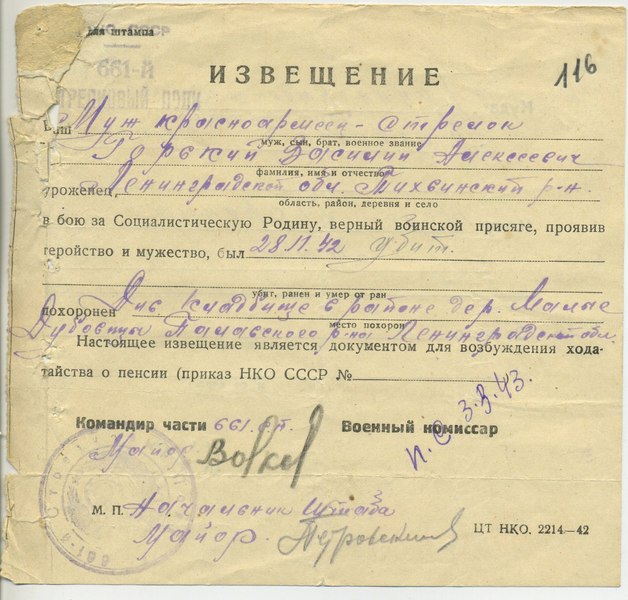 НКО СССР
для штампа
661-й
СТРЕЛКОВЫЙ ПОЛК
116
ИЗВЕЩЕНИЕ
Ваш Муж красноармеец - стрелок
муж, сын, брат, военное звание
Горький Василий Алексеевич
фамилия, имя и отчество
уроженец Ленинградской обл. Тихвинский р-н.
область, район, деревня и село
в бою за Социалистическую Родину, верный воинской присяге, проявив
геройство и мужество, был 28.11.42 убит.
убит, ранен и умер от ран
похоронен Див кладбище в районе дер. Малые
место похорон
Дубовицы Палавского р-на Ленинградской обл.
Настоящее извещение является документом для возбуждения хода-
тайства о пенсии (приказ НКО СССР №
Командир части 661 сп. Военный комиссар
Майор
И.С 3.3.43.
М. П. Начальник Штаба
Майор. Петровский
ЦТ НКО. 2214—42